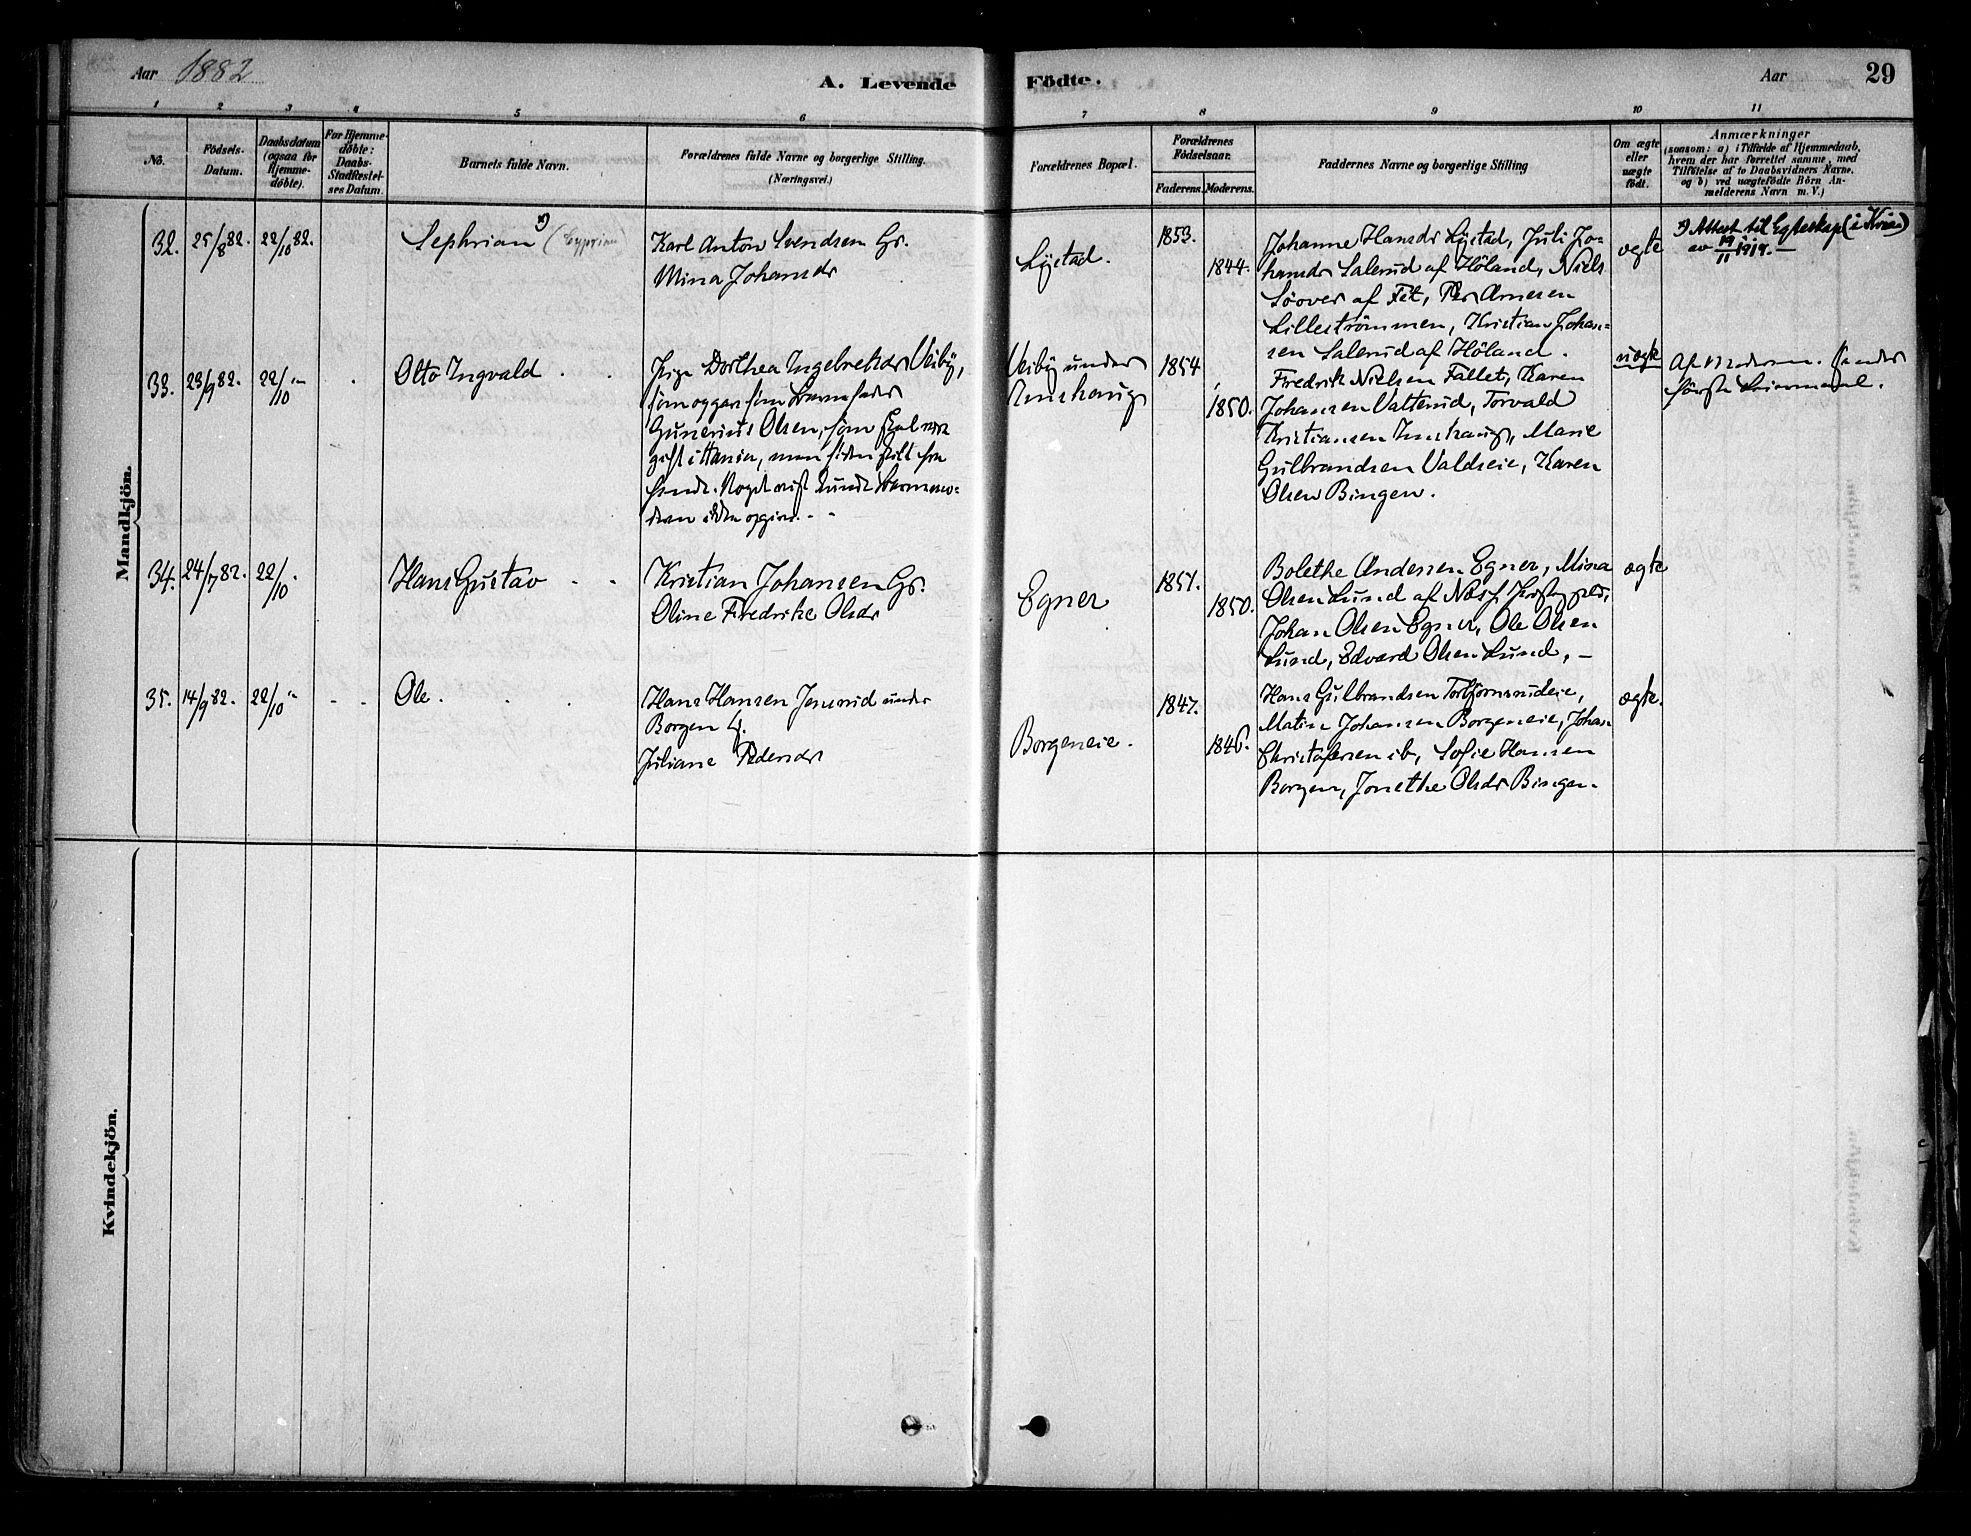 Aar 1882
A. Levende
Födte.
Aar
29
1 2 3 4 5 6 7 8 9 10 11
No.
Födsels-
Datum.
Daabsdatum
(ogsaa for
Hjemme-
döbte).
For Hjemme-
döbte:
Daabs-
Stadfæstel-
ses Datum.
Barnets fulde Navn.
Forældrenes fulde Navne og borgerlige Stilling.
(Næringsvei.)
Forældrenes Bopæl.
Forældrenes
Födselsaar.
Faderens. Moderens.
Faddernes Navne og borgerlige Stilling
Om ægte
eller
uægte
födt.
Anmærkninger
(saasom: a) i Tilfælde af Hjemmedaab,
hvem der har forrettet samme, med
Tilföielse af to Daabsvidners Navne,
og b) ved uægtefödte Börn An-
melderens Navn m. V.)
Mandkjön.
32. 25/8 82. 22/10 82.
Sephrian (Cyprian)
Karl Anton Svendsen Gr.
Mina Johansdr
Lÿstad.
1853.
1844.
Johanne Hansdr Lÿstad, Juli Jo-
hansdr Salerud af Höland, Niels
Söover af Fet, Per Arnesen
Lilleströmmen, Kristian Johan-
sen Salerud af Höland.
ægte
Attest til Egteskap (i Kria.)
av 19/11 1919.
33. 23/9 82. 22/10 "
Otto Ingvald
Pige Dorthea Ingebretsdr Veiby,
som opgav som Barnefader
Gunerius Olsen, som skal være
gift i , men siden skilt fra
hende. Noget vist kunde Barnemo-
deren ikke opgive.
Veiby under
1854
1850.
Fredrik Nielsen Fallet, Karen
Johansen Valterud, Torvald
Kristiansen , Marie
Gulbrandsen Valdseie, Karen
Olsen Bingen.
uægte
Af Moderen. hendes
förste Leiermaal.
34. 24/7 82. 22/10
Hans Gustav
Kristian Johansen Gr.
Oline Fredrike Olsdr
Egner
1851.
1850.
Bolethe Andersen Egner, Mina
Olsen Lund af Næs
Johan Olsen Egner, Ole Olsen
Lund, Edvard Olsen Lund,
ægte
35. 14/9 82. 22/10 "
Ole.
Hans Hansen Jensrud under
Borgen
Juliane Pedersdr
Borgeneie.
1847.
1846.
Hans Gulbrandsen Torbjörnsrudeie,
Matin Johansen Borgeneie, Johan
Christofersen ib, Sofie Hansen
Borgen, Jonethe Olsdr Bingen.
ægte.
Kvindekjön.